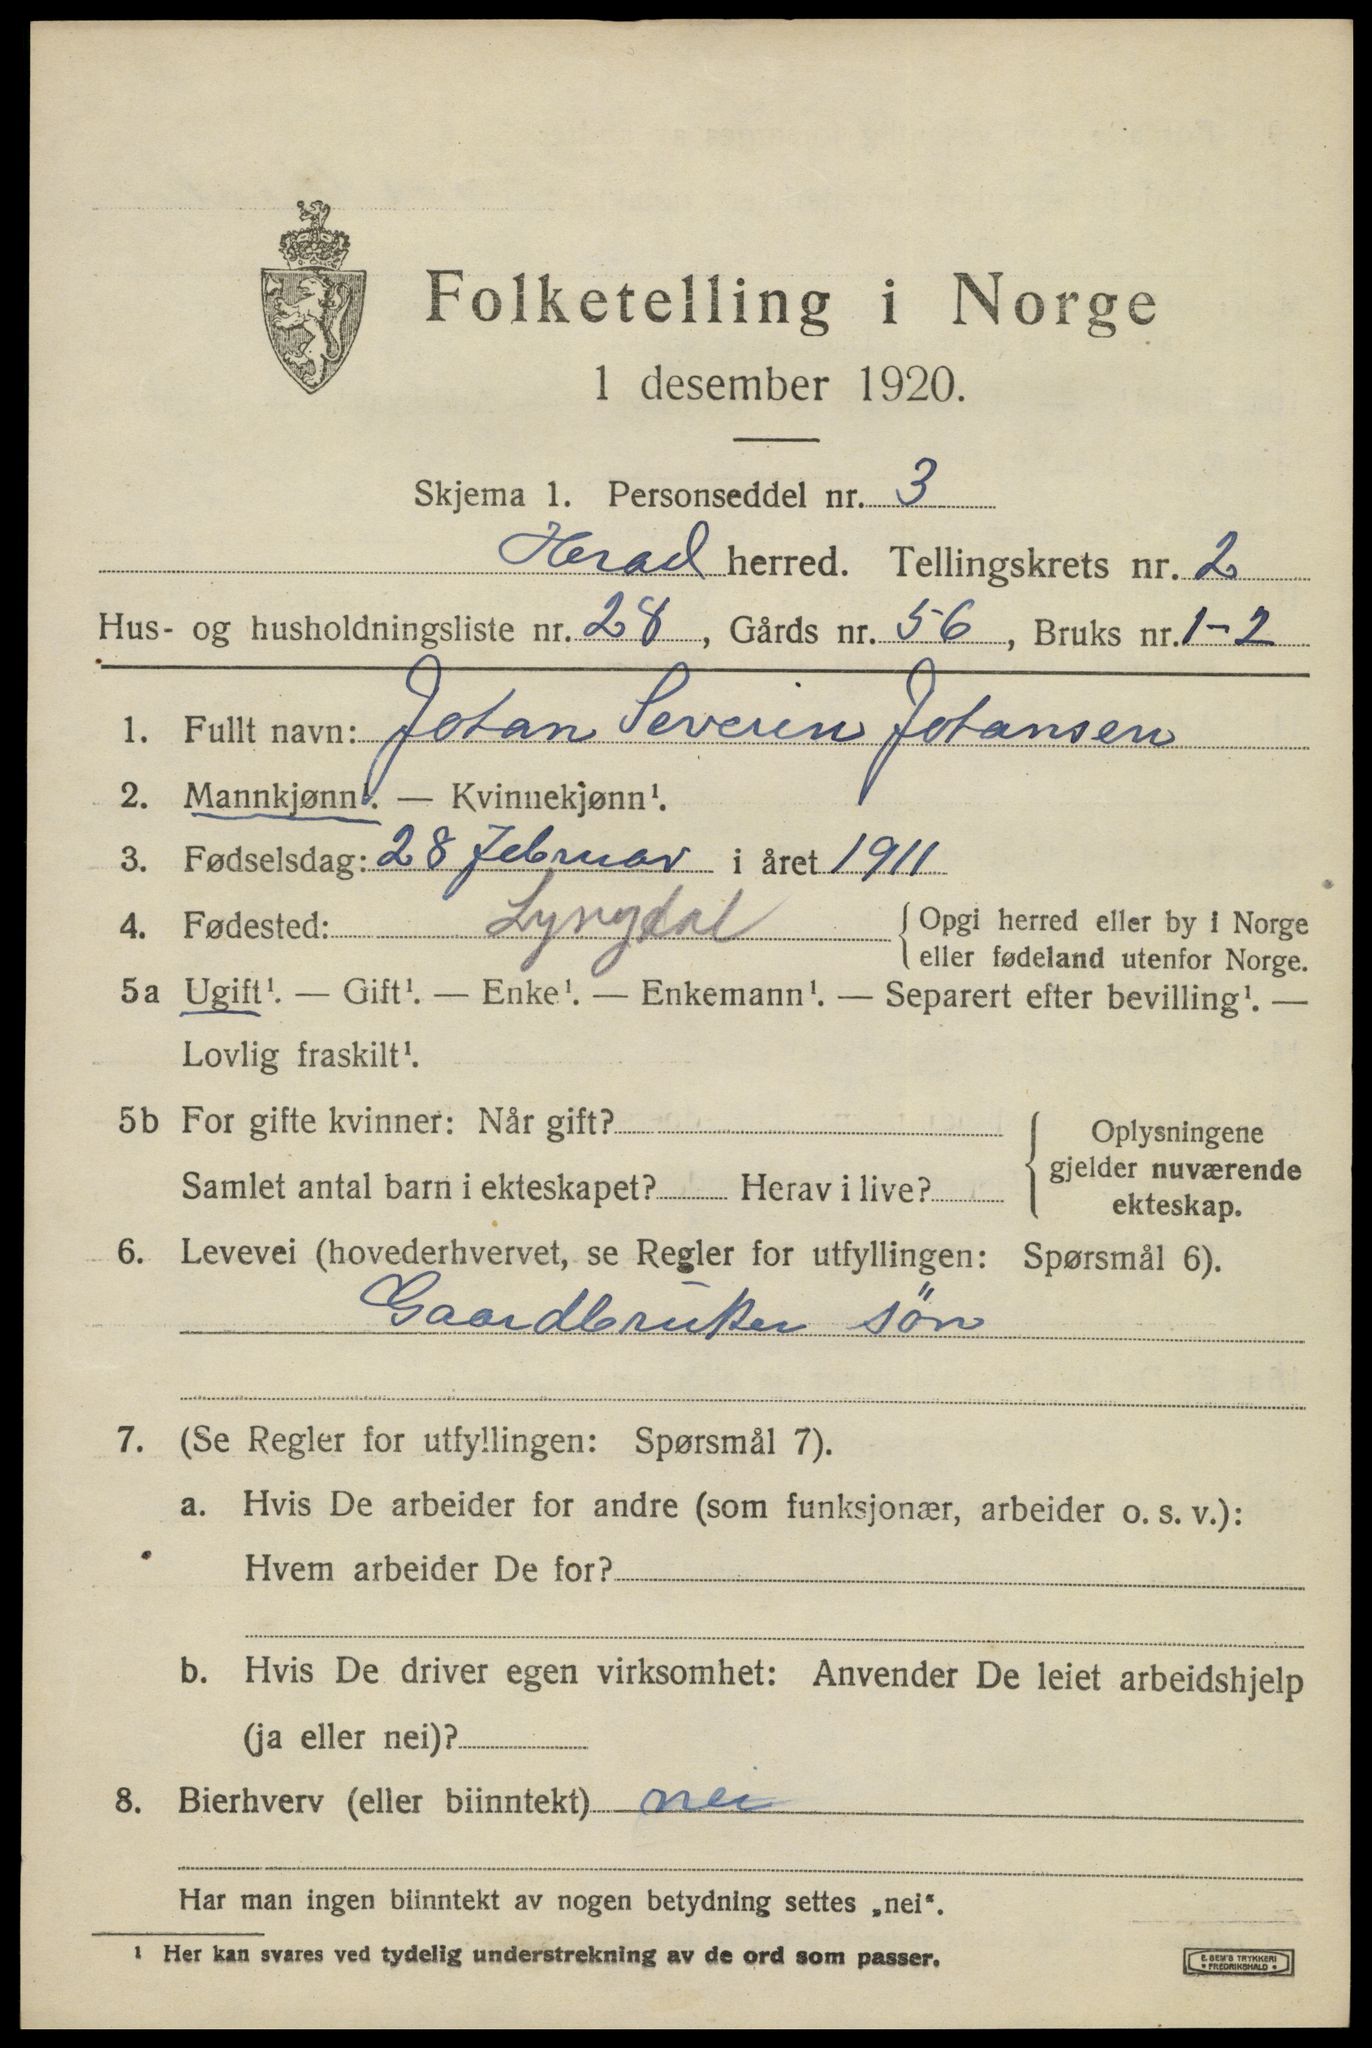 Folketelling i Norge
1 desember 1920.
Skjema 1. Personseddel nr. 3
Herad herred. Tellingskrets nr. 2
Hus- og husholdningsliste nr. 28, Gårds nr. 56, Bruks nr. 1-2
1. Fullt navn: Johan Severin Johansen
2. Mannkjønn¹. — Kvinnekjønn¹.
3. Fødselsdag: 28 Februar i året 1911
4. Fødested: Lyngdal { Opgi herred eller by i Norge
eller fødeland utenfor Norge.
5a Ugift¹. — Gift¹. — Enke¹. — Enkemann¹. — Separert efter bevilling¹. —
Lovlig fraskilt¹.
5b For gifte kvinner: Når gift?
Samlet antal barn i ekteskapet? Herav i live?
{ Oplysningene
gjelder nuværende
ekteskap.
6. Levevei (hovederhvervet, se Regler for utfyllingen: Spørsmål 6).
Gaardbruker sön
7. (Se Regler for utfyllingen: Spørsmål 7).
a. Hvis De arbeider for andre (som funksjonær, arbeider o. s. v.):
Hvem arbeider De for?
b. Hvis De driver egen virksomhet: Anvender De leiet arbeidshjelp
(ja eller nei)?
8. Bierhverv (eller biinntekt) nei
Har man ingen biinntekt av nogen betydning settes „nei“.
¹ Her kan svares ved tydelig understrekning av de ord som passer.
E. SEM'S TRYKKERI
• FREDRIKSHALD •